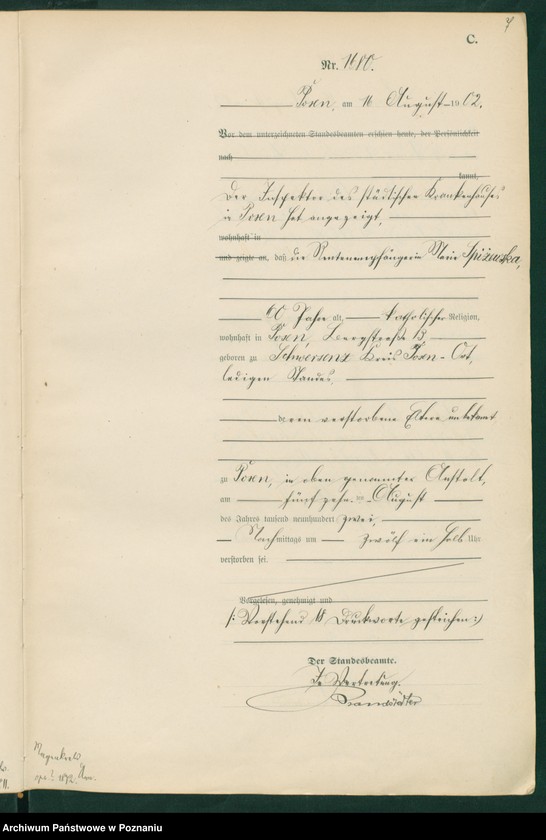 C.
Nr. 1680.
Posen, am 16 August 1902.
Vor dem unterzeichneten Standesbeamten erschien heute, der Persönlichkeit
nach
kannt,
Der Inspektor des städtischen Krankenhauses
in Posen hat angezeigt,
wohnhaft in
und zeigte an, daß die Rentenempfängerin Marie Spizewska,
60 Jahre alt, katholischer Religion,
wohnhaft in Posen, Bergstraße 13,
geboren zu Schwersenz Kreis Posen-Ost,
ledigen Standes,
deren verstorbene Eltern unbekannt
zu Posen, in oben genannter Anstalt,
am fünfzehnten August
des Jahres tausend neunhundert zwei,
Nachmittags um zwölf ein halb Uhr
verstorben sei.
Vorgelesen, genehmigt und
/: Vorstehend 18 Druckworte gestrichen :/
Der Standesbeamte.
In Vertretung.
Magenkrebs
Archiwum Państwowe w Poznaniu